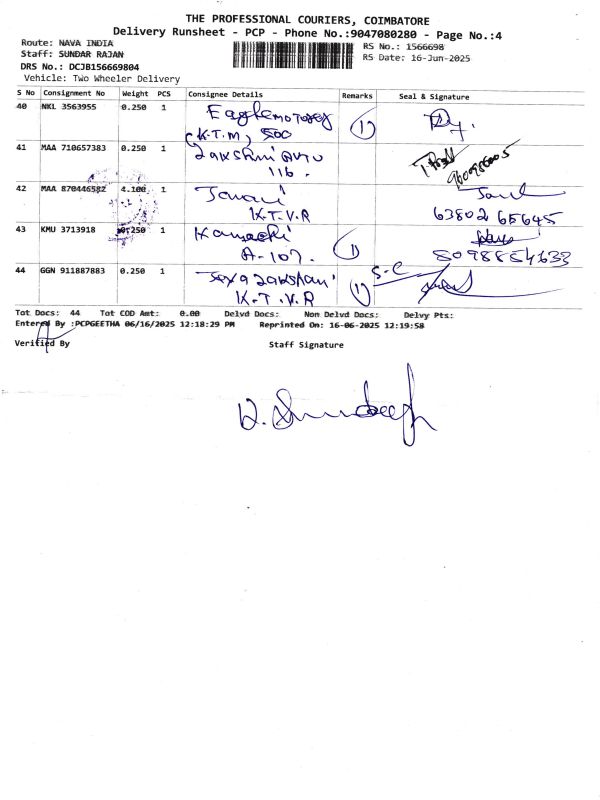 THE PROFESSIONAL COURIERS, COIMBATORE
Delivery Runsheet - PCP - Phone No.:9047080280 - Page No.:4
Route: NAVA INDIA
RS No.: 1566698
Staff: SUNDAR RAJAN
RS Date: 16-Jun-2025
DRS No.: DCJB156669804
Vehicle: Two Wheeler Delivery
S No Consignment No Weight PCS Consignee Details Remarks Seal & Signature
40 NKL 3563955 0.250 1 Eagle motores (1)
K.T.M, 500
41 MAA 710657383 0.250 1 Lakshmi Auto
116.
42 MAA 870446582 4.100 1 Janani
K.T.V.R 63802 65645
43 KMU 3713918 0.250 1 Kamachi (1)
A-107. 8098854633
44 GGN 911887883 0.250 1 S-C
K.T.V.R (1)
Tot Docs: 44 Tot COD Amt: 0.00 Delvd Docs: Non Delvd Docs: Delvy Pts:
Entered By :PCPGEETHA 06/16/2025 12:18:29 PM Reprinted On: 16-06-2025 12:19:58
Verified By Staff Signature